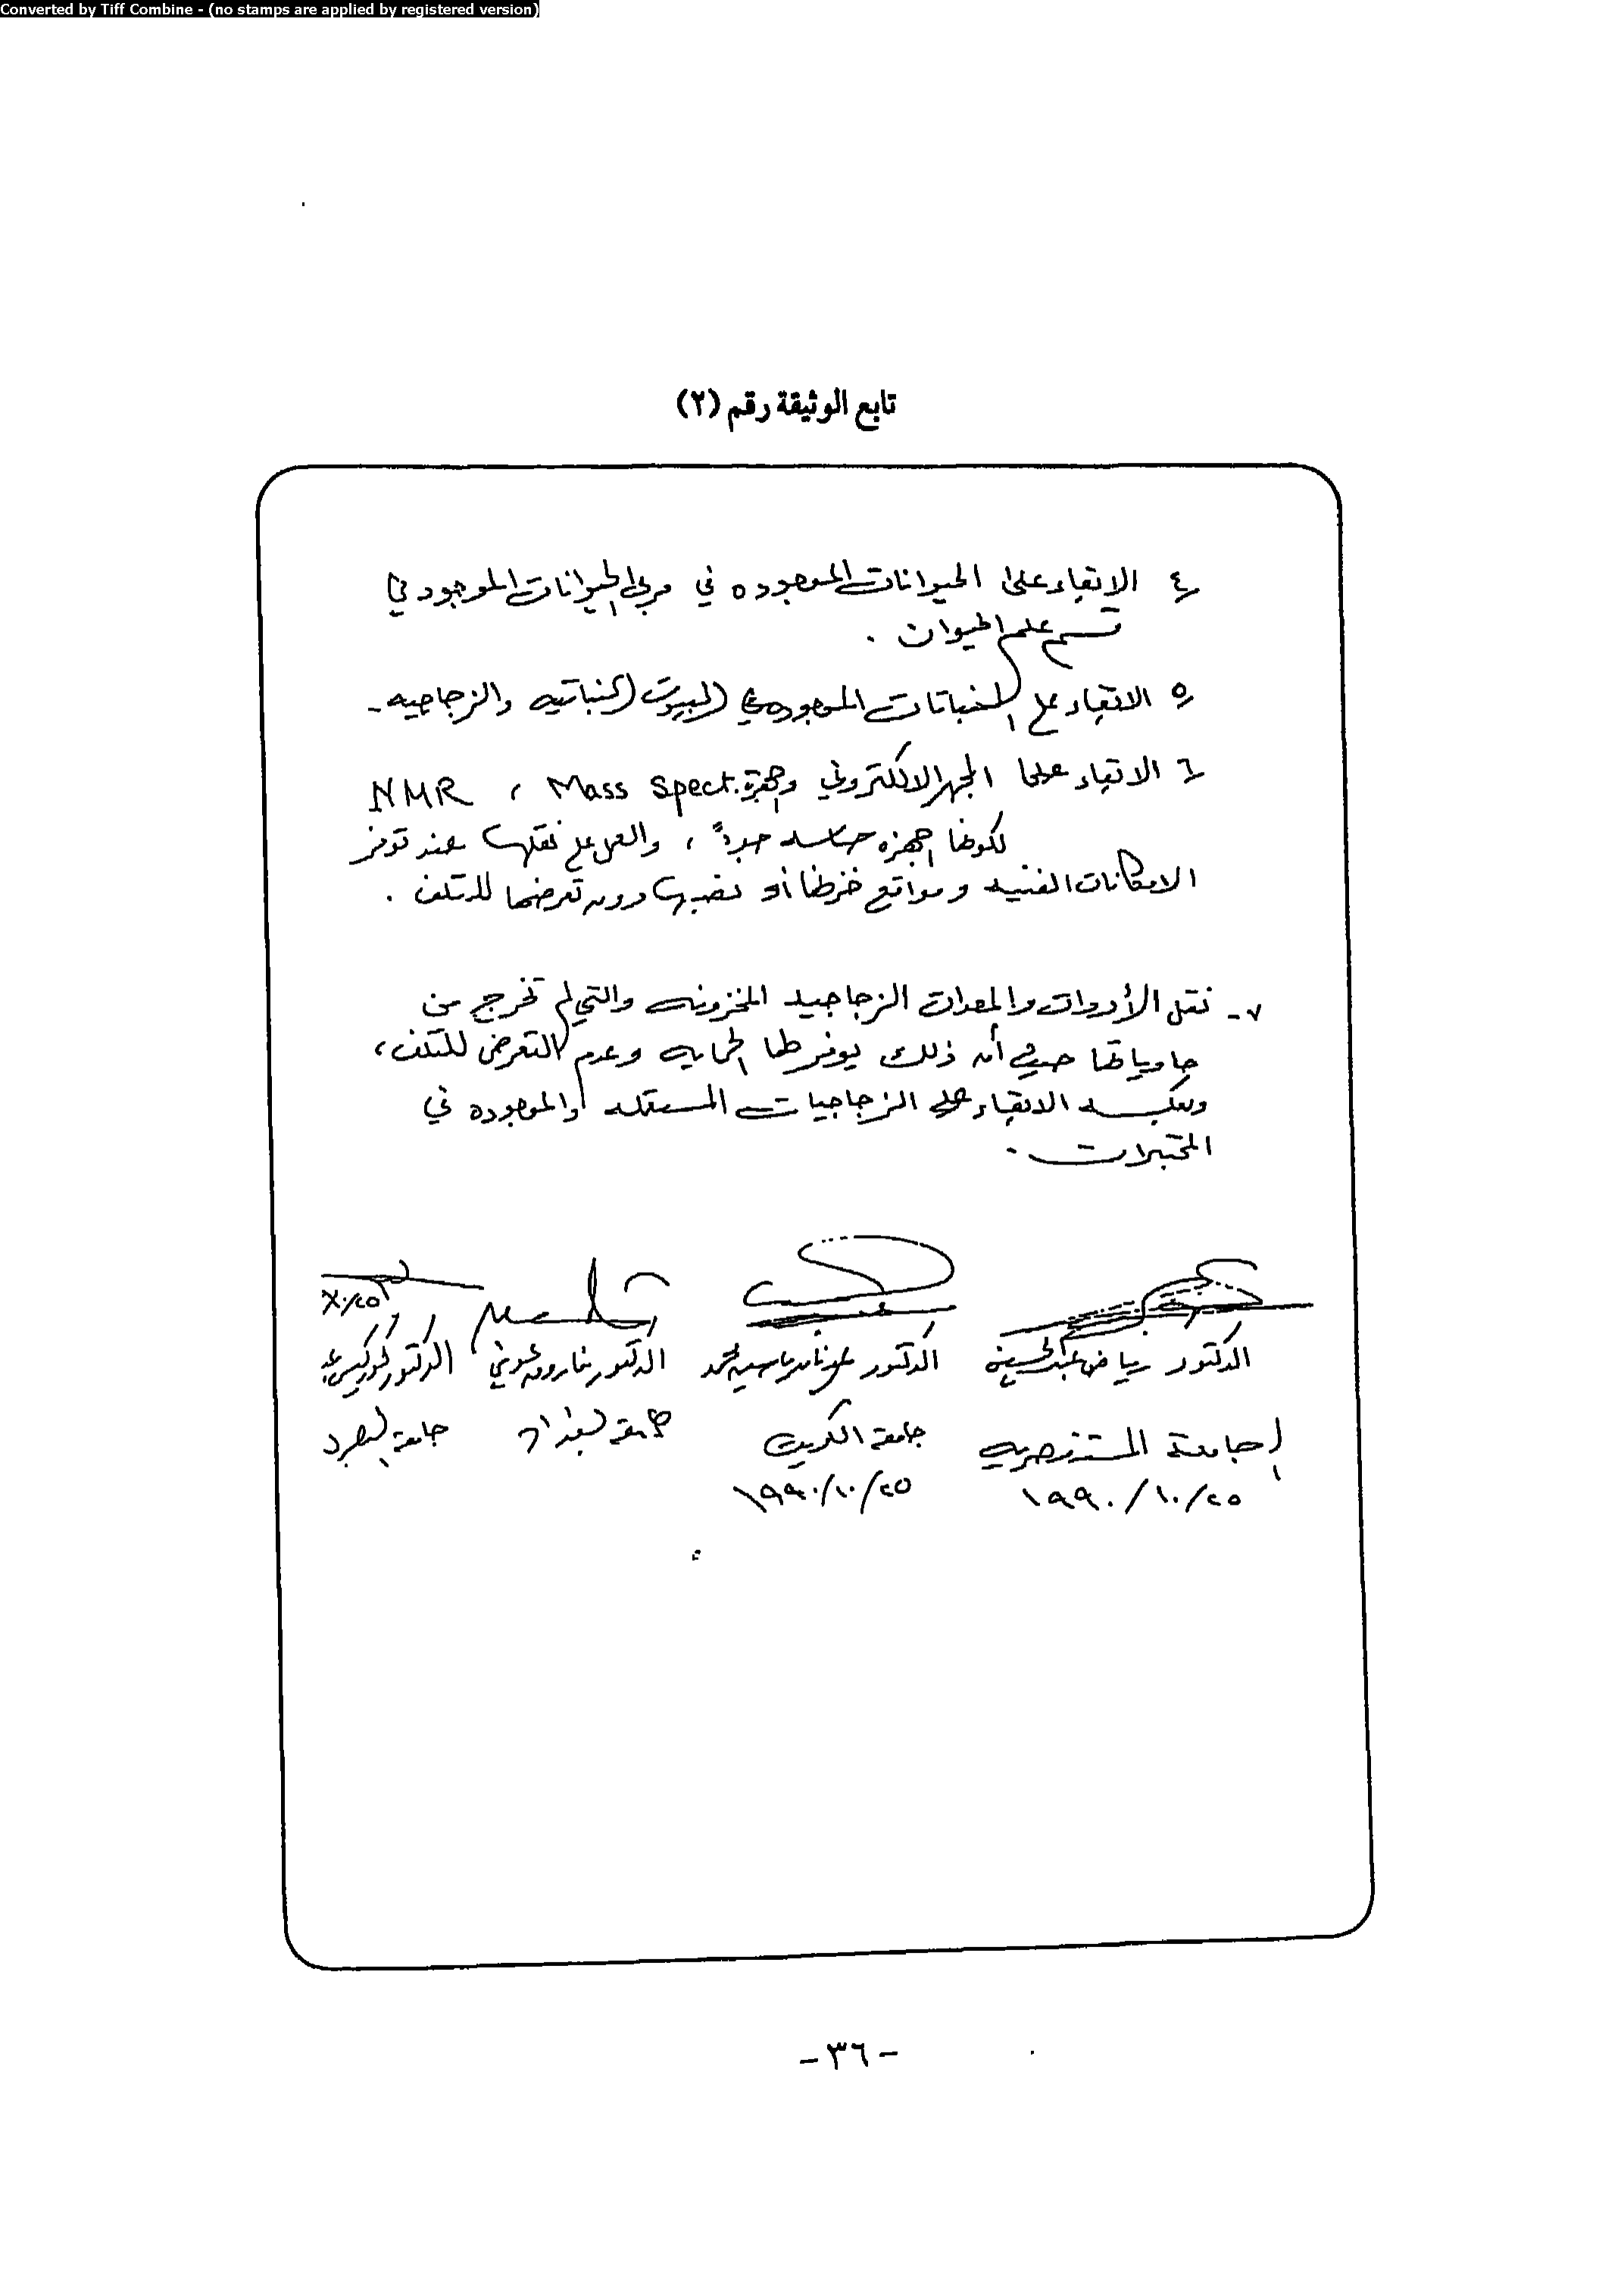 Converted by Tiff Combine - (no stamps are applied by registered version)
تابع الوثيقة رقم (٢)
٤ـ الابقاء على الحيوانات الموجوده في مربى الحيوانات الموجود في
قسم علم الحيوان .
٥ـ الابقاء على النباتات الموجوده في البيوت النباتيه والزجاجيه -
٦ـ الابقاء على المجهر الالكتروني واجهزة Mass Spect. ، NMR
لكونها اجهزه حساسه جداً ، والعمل على نقلها عند توفر
الامكانات الفنيه ومواقع خزنها أو نصبها دون تعرضها للتلف .
٧ـ نقل الأدوات والمعدات الزجاجيه المخزونه والتي لم تخرج من
حاوياتها حيث أن ذلك يوفر لها الحمايه وعدم التعرض للتلف ،
وبعكسه الابقاء على الزجاجيات المستعمله والموجوده في
المختبرات .
١٠/٢٥
الدكتور رياض عبد الحسين الدكتور عدنان ياسين محمد الدكتور فاروق عوني الدكتور
الجامعة المستنصريه جامعة الكويت جامعة بغداد جامعة البصرة
١٩٩٠/١٠/٢٥ ١٩٩٠/١٠/٢٥
- ٣٦ -